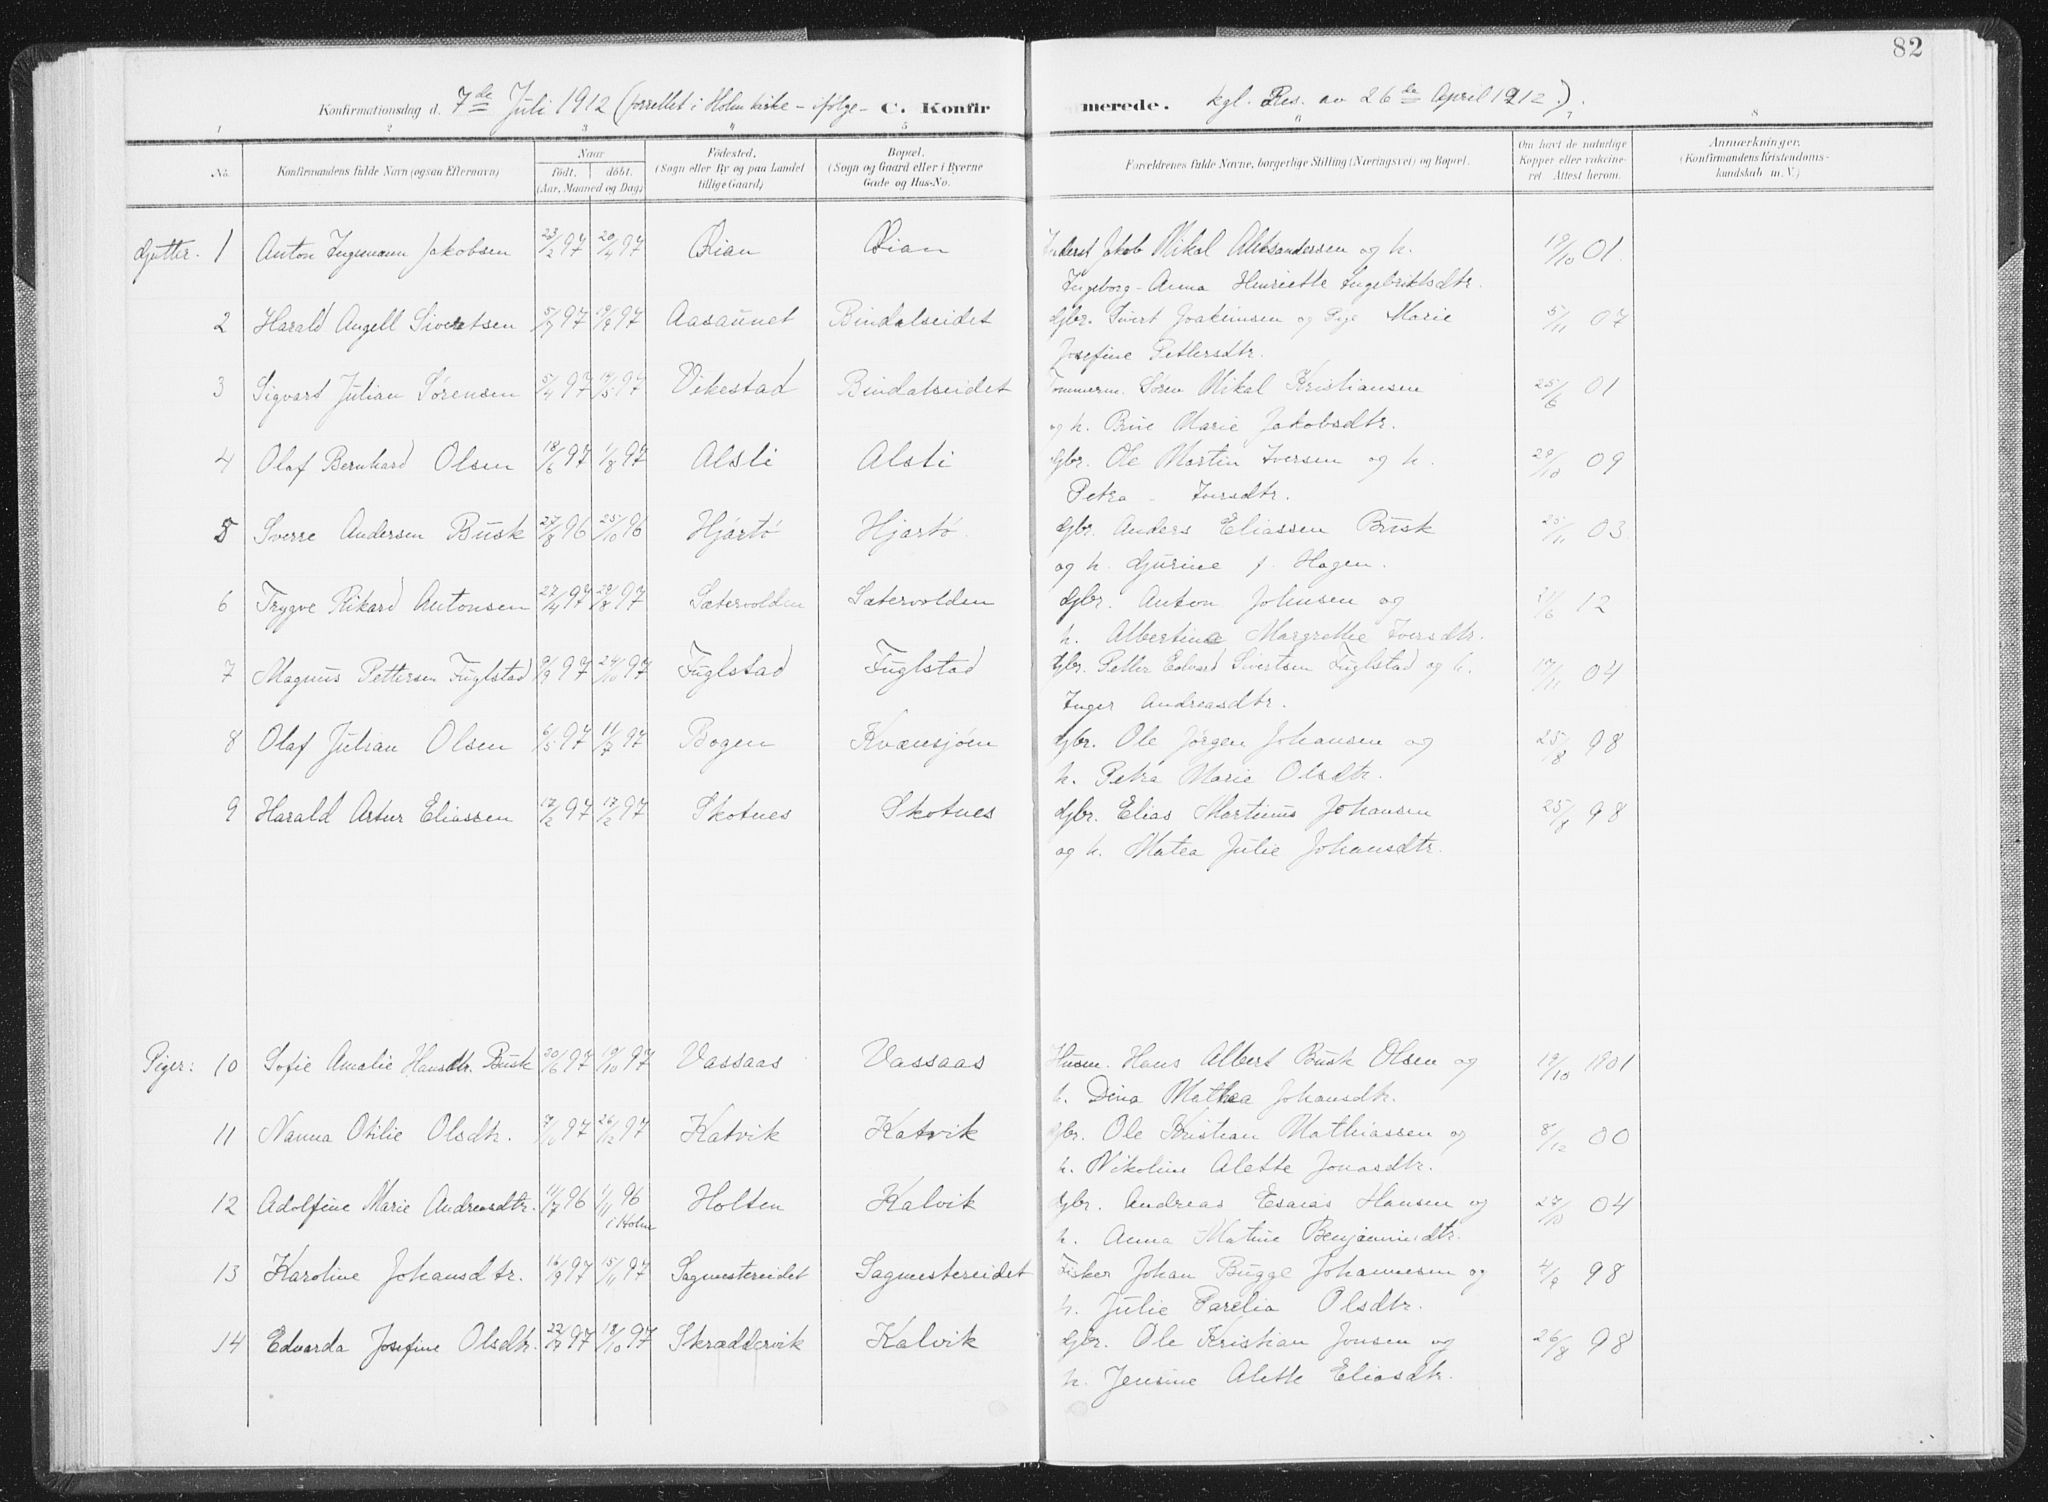 82
Konfirmationsdag d. 7de Juli 1912 (forrettet i Holm kirke - ifølge - C. Konfirmerede. kgl. Res. av 26de April 1912).
1 2 3 4 5 6 7 8
No. Konfirmandens fulde Navn (ogsaa Efternavn) Naar født. døbt. (Aar, Maaned og Dag) Fødested. (Sogn eller By og paa Landet tillige Gaard) Bopæl. (Sogn og Gaard eller i Byerne Gade og Hus-No. Forældrenes fulde Navne, borgerlige Stilling (Næringsvei) og Bopæl. Om havt de naturlige Kopper eller vaccineret Attest herom. Anmærkninger. (Konfirmandens Kristendomskundskab m. V.)
Gutter. 1 Anton Ingemann Jakobsen 23/2 97 20/4 97 Øian Øian Jakob Mikal Aleksandersen og h. 19/10 01
Ingeborg-Anna Henriette Ingebriktsdtr.
2 Harald Angell Sivertsen 5/7 97 19/9 97 Aasaunet Bindalseidet Gbr. Sivert Joakimsen og Pige Marie 5/11 07
Josefine Pettersdtr.
3 Sigvart Julian Sørensen 5/4 97 97 Vikestad Bindalseidet Tømmerm. Søren Mikal Kristiansen 25/6 01
og h. Brine Marie Jakobsdtr.
4 Olaf Bernhard Olsen 18/6 97 1/8 97 Alsli Alsli Gbr. Ole Martin Iversen og h. 29/10 09
Petra - Iversdtr.
5 Sverre Andersen Busk 27/8 96 25/10 96 Hjartø Hjartø. Gbr. Anders Eliassen Busk 25/11 03
og h. Gurine f. Hagen.
6 Trygve Rikard Antonsen 27/4 97 29/8 97 Sætervolden Sætervolden Gbr. Anton Johnsen og 12
h. Albertine Margrethe Iversdtr.
7 Magnus Pettersen Fuglstad 9/9 97 24/10 97 Fuglstad Fuglstad Gbr. Petter Edvard Sivertsen Fuglstad og h. 17/11 04
Inger Andreasdtr.
8 Olaf Julian Olsen 6/5 97 11/7 97 Bogen Kvænsjøen Gbr. Ole Jørgen Johansen og 25/8 98
h. Petra Marie Olsdtr.
9 Harald Artur Eliassen 17/2 97 17/2 97 Skotnes Skotnes Gbr. Elias Martinus Johansen 25/8 98
og h. Matea Julie Johansdtr.
Piger: 10 Sofie Amalie Hansdtr. Busk 20/6 97 19/10 97 Vassaas Vassaas Husm. Hans Albert Busk Olsen og 19/10 1901
h. Dina Mathea Johansdtr.
11 Nanna Otilie Olsdtr. 97 26/12 97 Katvik Katvik Gbr. Ole Kristian Mathiassen og 8/12 00
h. Nikoline Alette Jonasdtr.
12 Adolfine Marie Andreasdtr. 96 1/11 96 Holten Kalvik Gbr. Andreas Esaias Hansen og 27/10 04
i Holm
h. Anna Matine Benjaminsdtr.
13 Karoline Johansdtr. 16/9 97 15/11 97 Sagmestereidet Sagmestereidet Fisker Johan Bugge Johannesen og 4/9 98
h. Julie Parelia Olsdtr.
14 Edvarda Josefine Olsdtr. 22/7 97 18/10 97 Skræddervik Kalvik Gbr. Ole Kristian Jonsen og 26/8 98
h. Jensine Alette Eliasdtr.